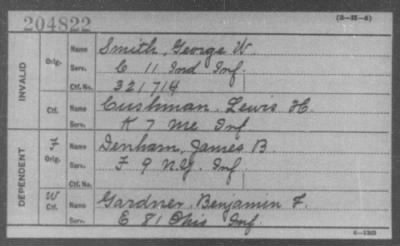 204822
(3-25-8)
INVALID
Orig.
Name Smith, George W.
Serv. C 11 Ind Inf.
Ctf. No. 321,714
Ctf.
Name Cushman, Lewis H.
Serv. K 7 Me Inf
DEPENDENT
Orig.
Name Denham, James B
Serv. F 9 N.Y. Inf.
Ctf. No.
W
Ctf.
Name Gardner, Benjamin F.
Serv. E 81 Ohio Inf.